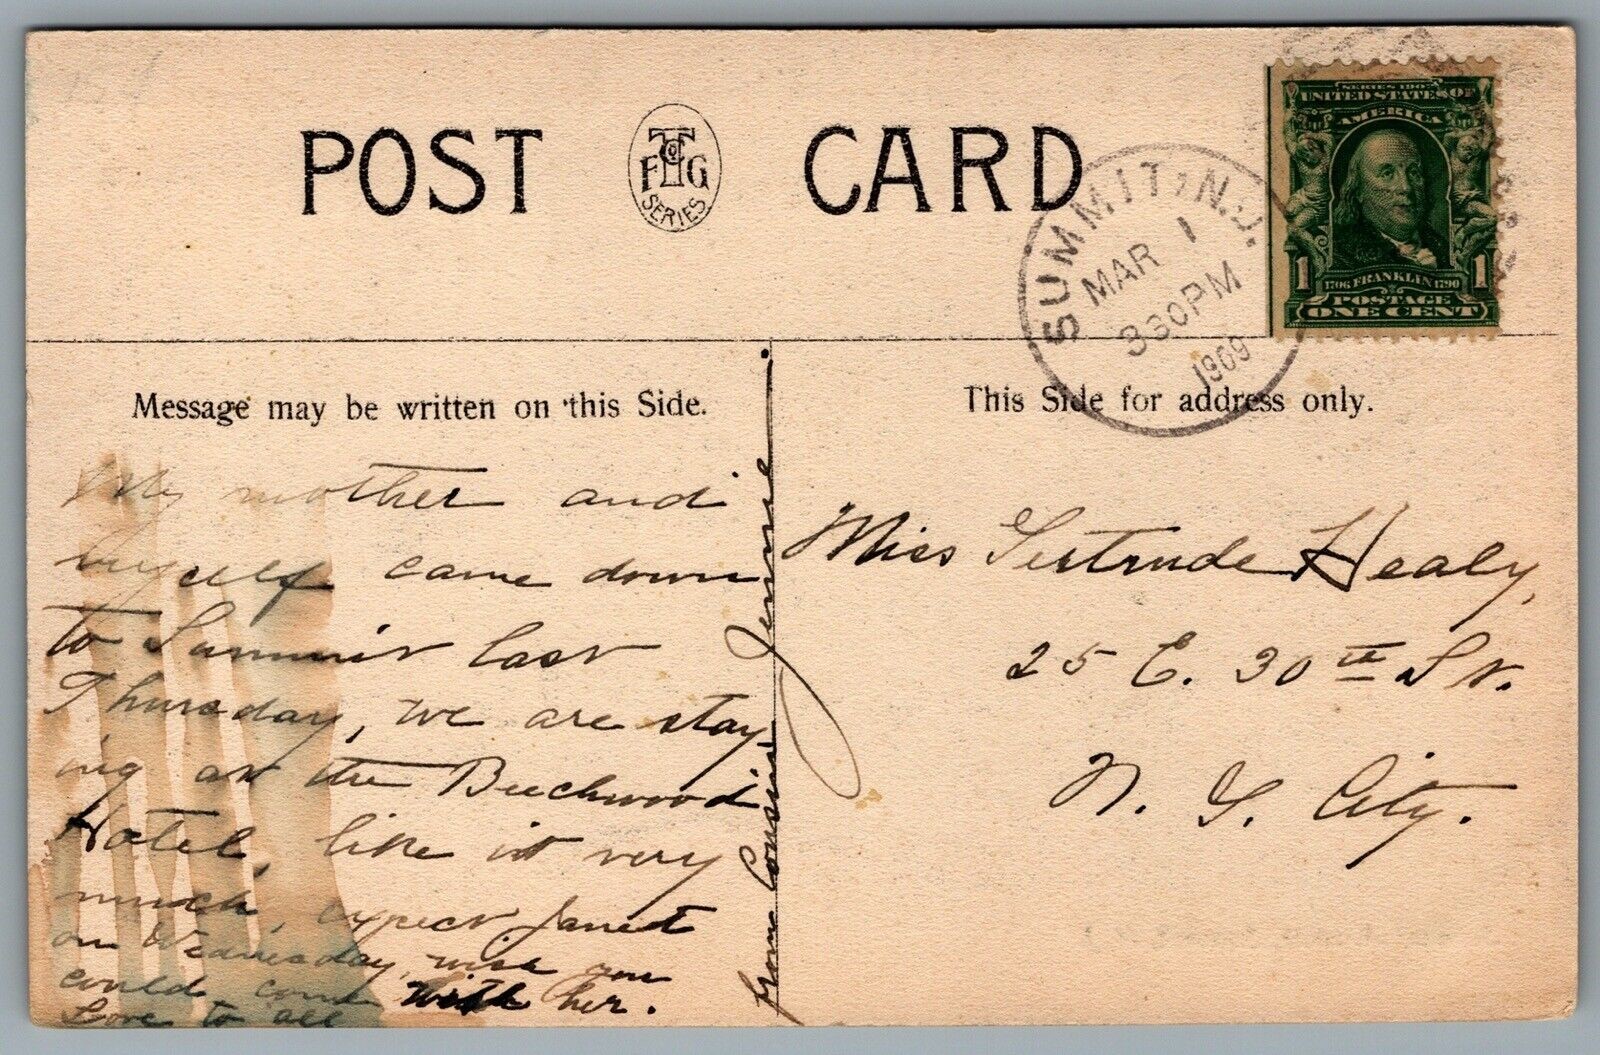 POST CARD
T Co
F G
SERIES
SUMMIT, N.J.
MAR 1
330PM
1909
SERIES 1902
UNITED STATES OF
AMERICA
1 1706 FRANKLIN 1790 1
POSTAGE
ONE CENT
Message may be written on this Side.
This Side for address only.
My mother and
myself came down
to Summit last
Thursday, we are stay
ing at the Beechwood
Hotel, like it very
much, expect Janet
on Wednesday, wish you
could come with her.
Love to all
from Cousin Jennie.
Miss Gertrude Healy,
25 E. 30th St.
N. Y. City.